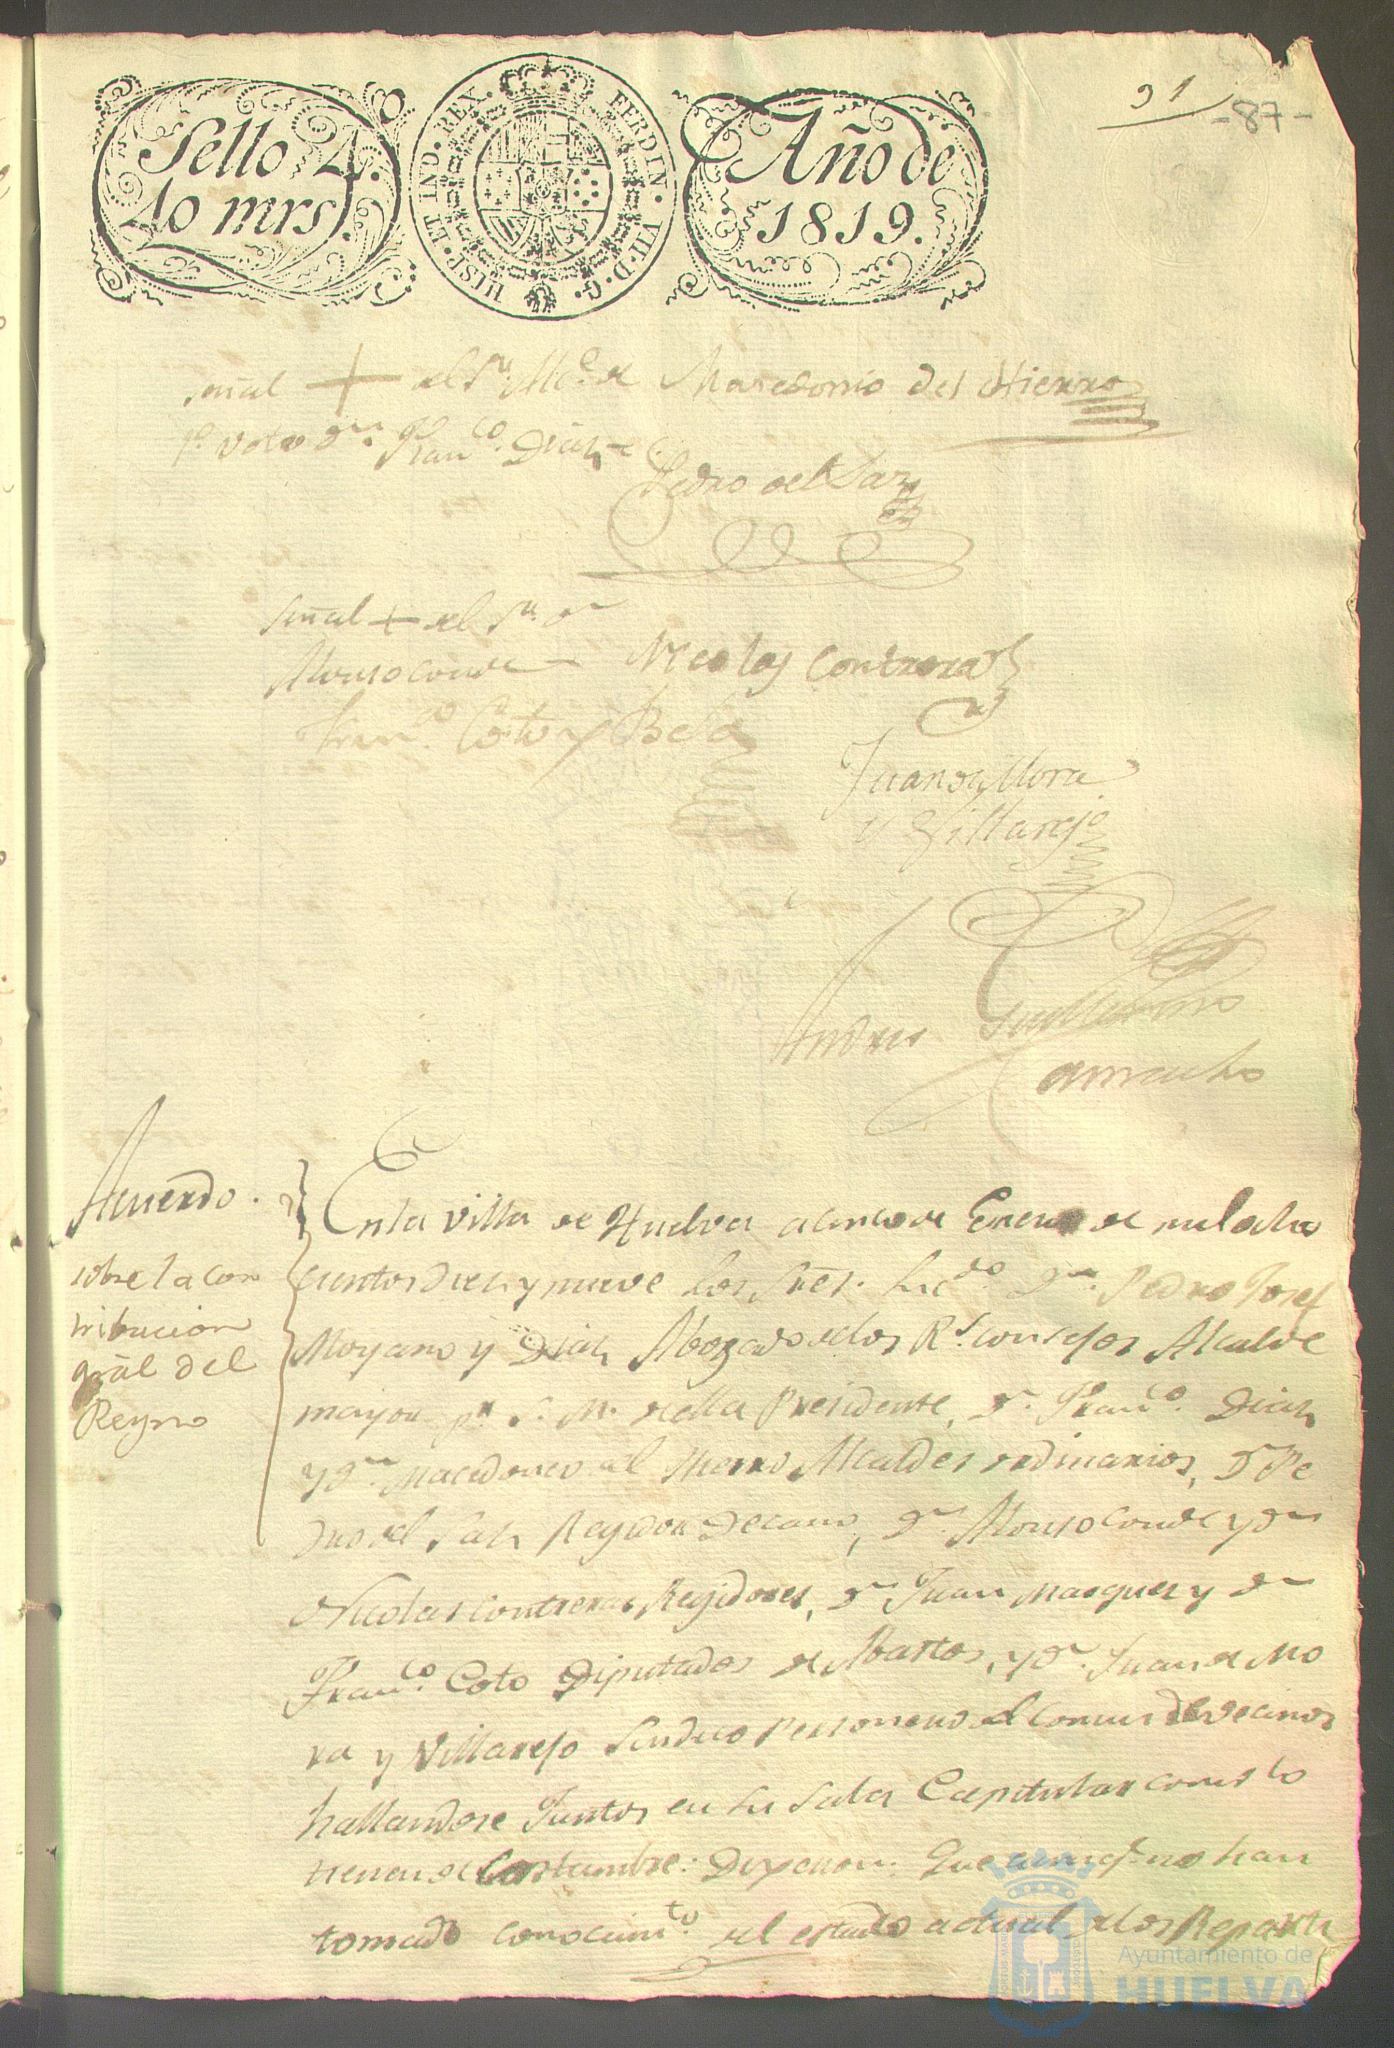 91
-87-
Sello 4.º
40 mrs.
HISP. ET IND. REX. FERDIN. VII. D. G.
Año de
1819.
Señal + del Sr. Alc.e de Macedonio del Hierro
1.º voto Dn. Franco. Diaz
Pedro del Saz
Señal + del Sr. Dn
Alonso Conde Nicolas Contreras
Franco. Coto y Bela
Juan de Mora
y Villarejo
Andres Guillermo
Camacho
Acuerdo.
sobre la con
tribucion
grâl del
Reyno
En la villa de Huelva a cinco de Enero de mil ocho
cientos diez y nueve los Sres. Licdo. Dn. Pedro Josef
Moyano y Diaz Abogado de los Rs. Consejos Alcalde
mayor pr. S. M. de ella Presidente, Dn. Franco. Diaz
y Dn. Macedonio del Hierro Alcaldes ordinarios, Dn Pe
dro del Saz Regidor Decano, Dn. Alonso Conde y Dn
Nicolas Contreras Regidores, Dn Juan Marquez y Dn
Franco. Coto Diputados de Abastos, y Dn. Juan de Mo
ra y Villarejo Sindico Personero del comun de vecinos
hallandose Juntos en su Sala Capitular como lo
tienen de Costumbre: Dixeron: Que aunqe. no han
tomado conocimto. del estado actual de los Reparti
Ayuntamiento de
HUELVA